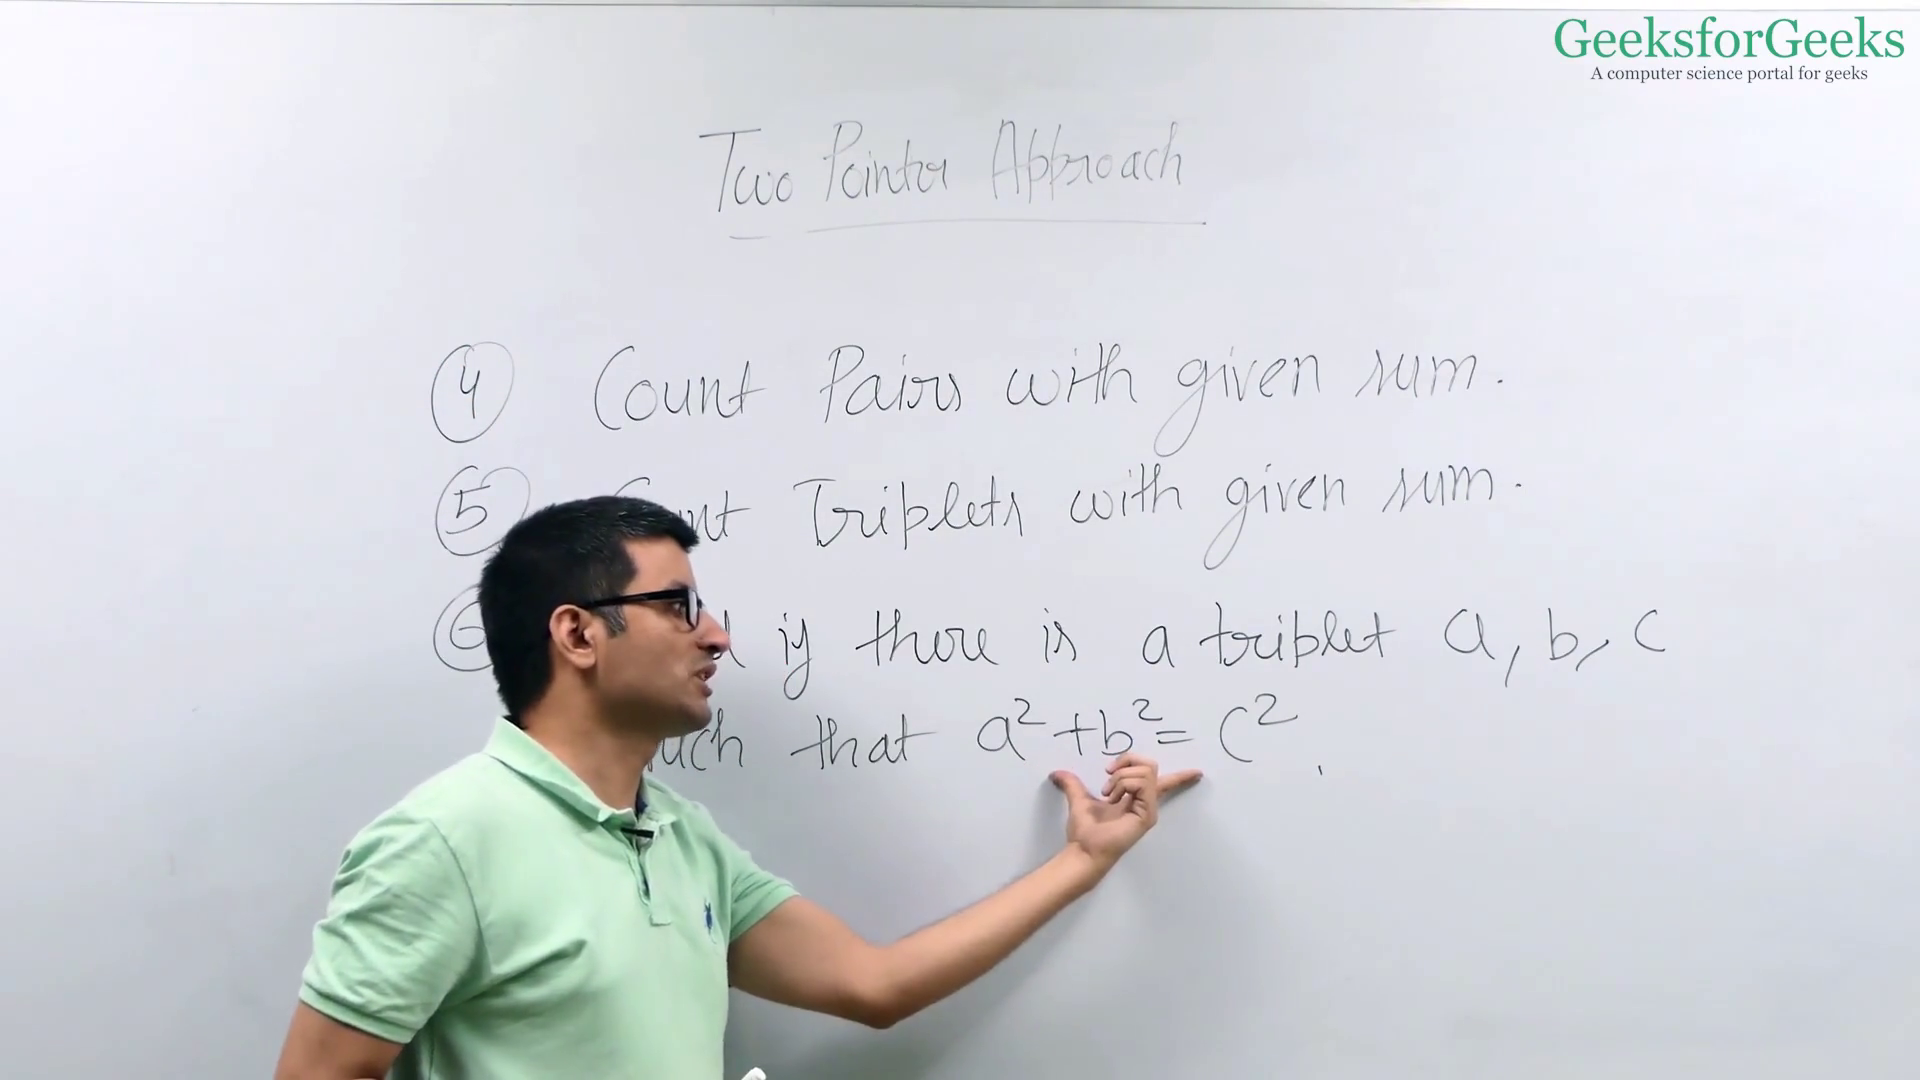 GeeksforGeeks
A computer science portal for geeks
Two Pointer Approach
4 Count Pairs with given sum.
5 Triplets with given sum.
if there is a triplet a, b, c
that a² + b² = c².